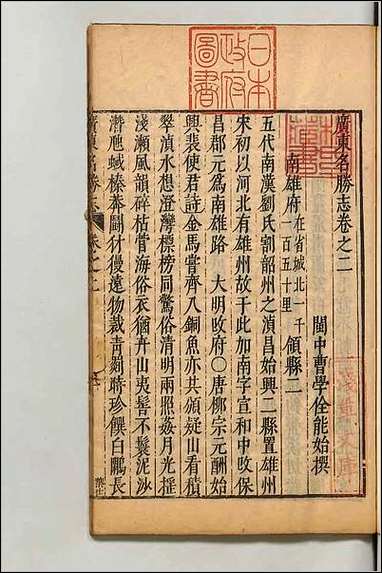 日本
政府
圖書
廣東名勝志卷之二
閩中曹學佺能始撰
南雄府在省城北一千一百五十里領縣二
五代南漢劉氏割韶州之湞昌始興二縣置雄州
宋初以河北有雄州故于此加南字宣和中改保
昌郡元為南雄路 大明改府〇唐柳宗元酬始
興裴使君詩金馬嘗齊入銅魚亦共頒疑山看積
翠湞水想澄灣標榜同驚俗清明兩照姦月光搖
淺瀨風韻碎枯菅海俗衣猶卉山夷髻不鬟泥沙
潛虺蜮榛莽鬬豺獌遠物裁青罽時珍饌白鷳長
廣東名勝志
淺草文庫